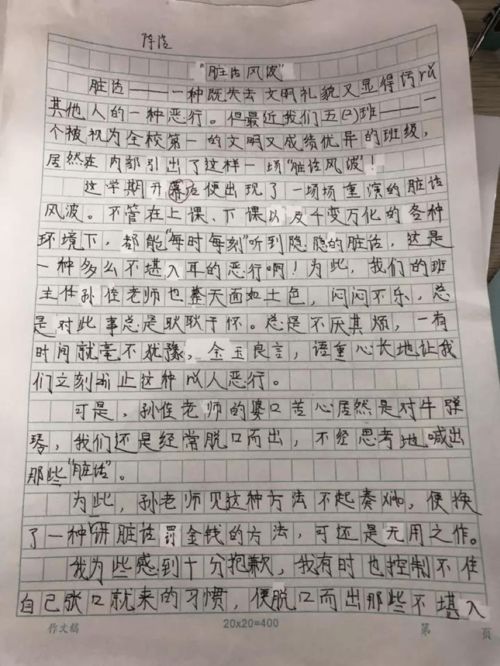 "脏话风波"
脏话——一种既失去文明礼貌又显得污
其他人的一种恶行。但最近我们五(2)班——一
个被视为全校第一的文明又成绩优异的班级,
居然在内部引出了这样一场"脏话风波!
这学期开幕后便出现了一场场重演的脏话
风波。不管在上课、下课以及千变万化的各种
环境下,都能"每时每刻"听到隐隐的脏话,这是
一种多么不堪入耳的恶行啊!为此,我们的班
主任孙佳老师也整天面如土色,闷闷不乐,总
是对此事总是耿耿于怀。总是不厌其烦,一有
时间就毫不犹豫,金玉良言,语重心长地让我
们立刻停止这种恶行。
可是,孙佳老师的婆口苦心居然是对牛弹
琴,我们还是经常脱口而出,不经思考地喊出
那些"脏话"。
为此,孙老师见这种方法不起奏效,便换
了一种讲脏话罚金钱的方法,可还是无用之作。
我为些感到十分抱歉,我有时也控制不住
自己张口就来的习惯,便脱口而出那些不堪入
作文稿 20x20=400 第 页